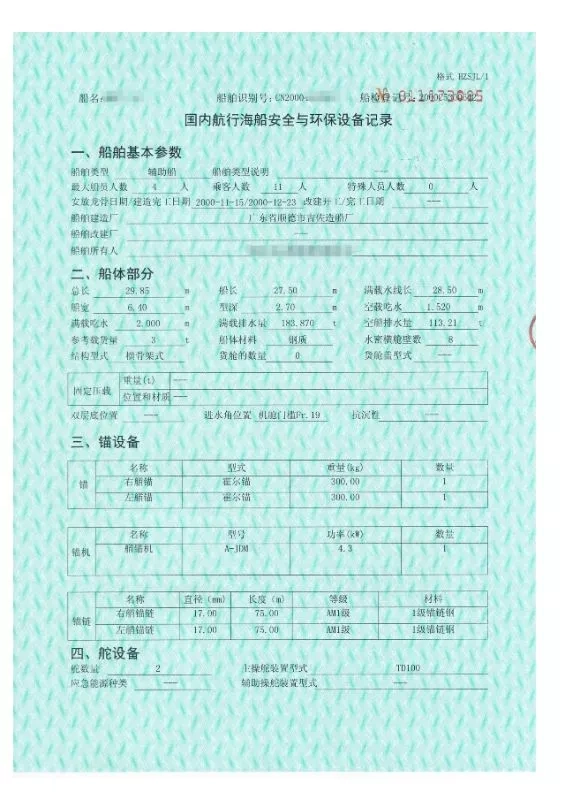 格式 HZSJL/1
船名: 船舶识别号: CN2000 船检登记号:
№ 011473085
国内航行海船安全与环保设备记录
一、船舶基本参数
船舶类型 辅助船 船舶类型说明 ---
最大船员人数 4 人 乘客人数 11 人 特殊人员人数 0 人
安放龙骨日期/建造完工日期 2000-11-15/2000-12-23 改建开工/完工日期 ---
船舶建造厂 广东省顺德市吉佐造船厂
船舶改建厂 ---
船舶所有人
二、船体部分
总长 29.85 m 船长 27.50 m 满载水线长 28.50 m
船宽 6.40 m 型深 2.70 m 空载吃水 1.520 m
满载吃水 2.000 m 满载排水量 183.870 t 空船排水量 113.21 t
参考载货量 3 t 船体材料 钢质 水密横舱壁数 8
结构型式 横骨架式 货舱的数量 0 货舱盖型式 ---
固定压载 重量(t) ---
位置和材质 ---
双层底位置 --- 进水角位置 机舱门槛Fr.19 抗沉性 ---
三、锚设备
锚 名称 型式 重量(kg) 数量
右艏锚 霍尔锚 300.00 1
左艏锚 霍尔锚 300.00 1
锚机 名称 型号 功率(kW) 数量
艏锚机 A-JDM 4.3 1
锚链 名称 直径 (mm) 长度 (m) 等级 材料
右艏锚链 17.00 75.00 AM1级 1级锚链钢
左艏锚链 17.00 75.00 AM1级 1级锚链钢
四、舵设备
舵数量 2 主操舵装置型式 TD100
应急能源种类 --- 辅助操舵装置型式 ---